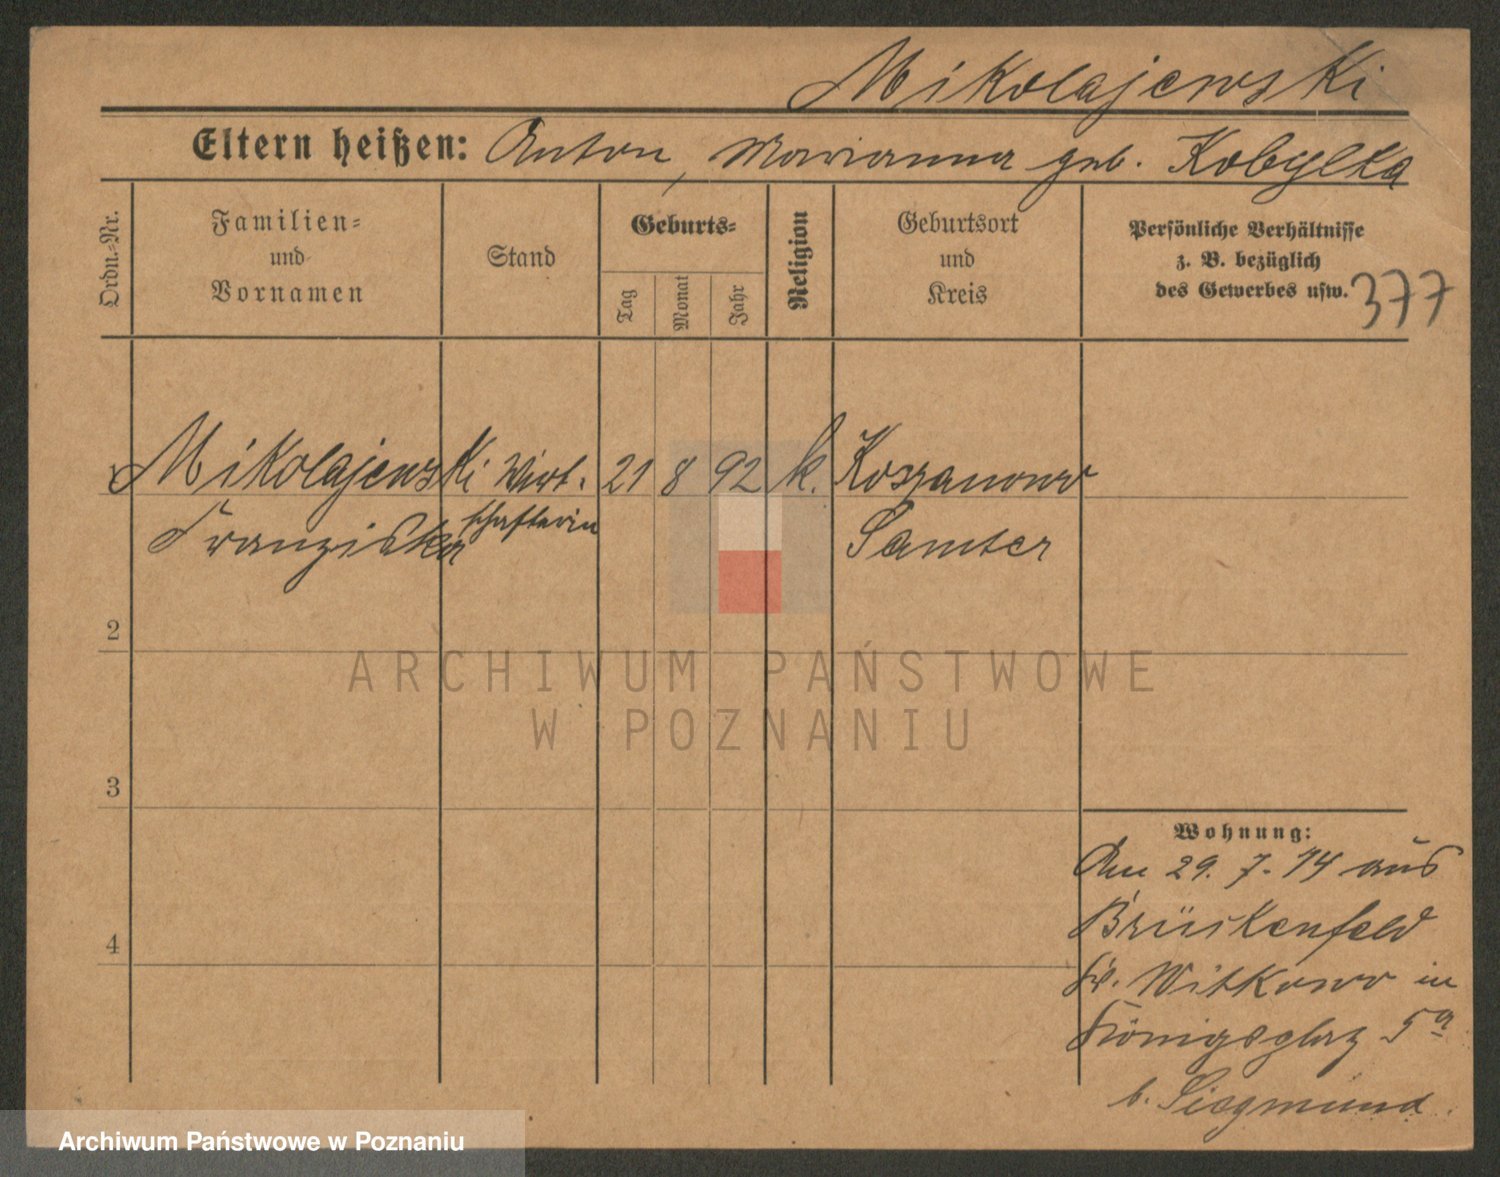 Mikolajewski
Eltern heißen: Anton, Marianna geb. Kobylka
Ordn.-Nr.
Familien-
und
Vornamen
Stand
Geburts-
Tag
Monat
Jahr
Religion
Geburtsort
und
Kreis
Persönliche Verhältnisse
z. B. bezüglich
des Gewerbes usw.
377
1 Mikolajewski Wirt- 21 8 92 k. Koszanowo
Franziska schafterin Samter
2
3
4
Wohnung:
Am 29. 7. 14 aus
Brückenfeld
Kr. Witkowo in
Königsplatz 5a
b. Siegmund.
ARCHIWUM PAŃSTWOWE
W POZNANIU
Archiwum Państwowe w Poznaniu